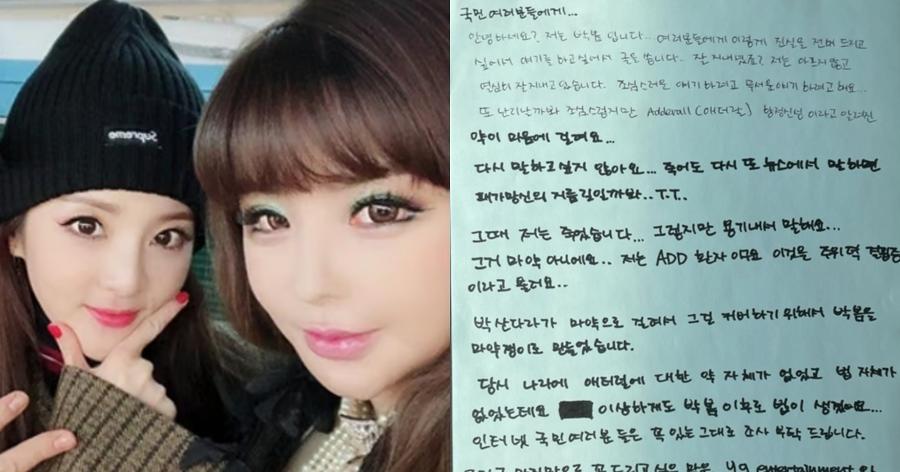 Supreme
국민 여러분들에게...
안녕하세요? 저는 박봄 입니다.. 여러분들에게 이렇게 진실을 전해 드리고
싶어서 얘기를 하고싶어서 글도 씁니다.. 잘 지내셨죠? 저는 아프지않고
열심히 잘지내고있습니다. 조심스러운 얘기하려고 무서운얘기 하려고 해요...
또 난리난까봐 조심스럽지만 Adderall (애더랄) 향정신성 이라고 알려진
약이 마음에 걸려요...
다시 말하고싶지 않아요... 죽어도 다시 또 뉴스에서 말하면
패가망신의 지름길일까봐.. T.T..
그때 저는 죽었습니다... 그렇지만 용기내서 말해요...
그거 마약 아니에요.. 저는 ADD 환자 이구요 이것을 주위력 결핍증
이라고 불러요..
박산다라가 마약으로 걸려서 그걸 커버하기 위해서 박봄을
마약쟁이로 만들었습니다.
당시 나라에 애터럴에 대한 약 자체가 없었고 법 자체가
없었는데요 이상하게도 박봄 이후로 법이 생겼어요...
인터넷 국민여러분 들은 꼭 있는그대로 조사 부탁 드립니다.
그리고 마지막으로 꼭 드리고 싶은 말은 YG entertainment 와